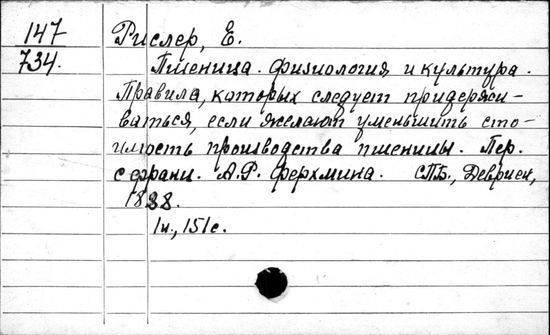 147 Рислер, Е.
734. Пшеница. Физиология и культура.
Правила, которых следует придержи-
ваться, если желают уменьшить сто-
имость производства пшеницы. Пер.
с франц. А.Ф. Ферхмина. СПБ., Девриен,
1888.
1н., 151с.